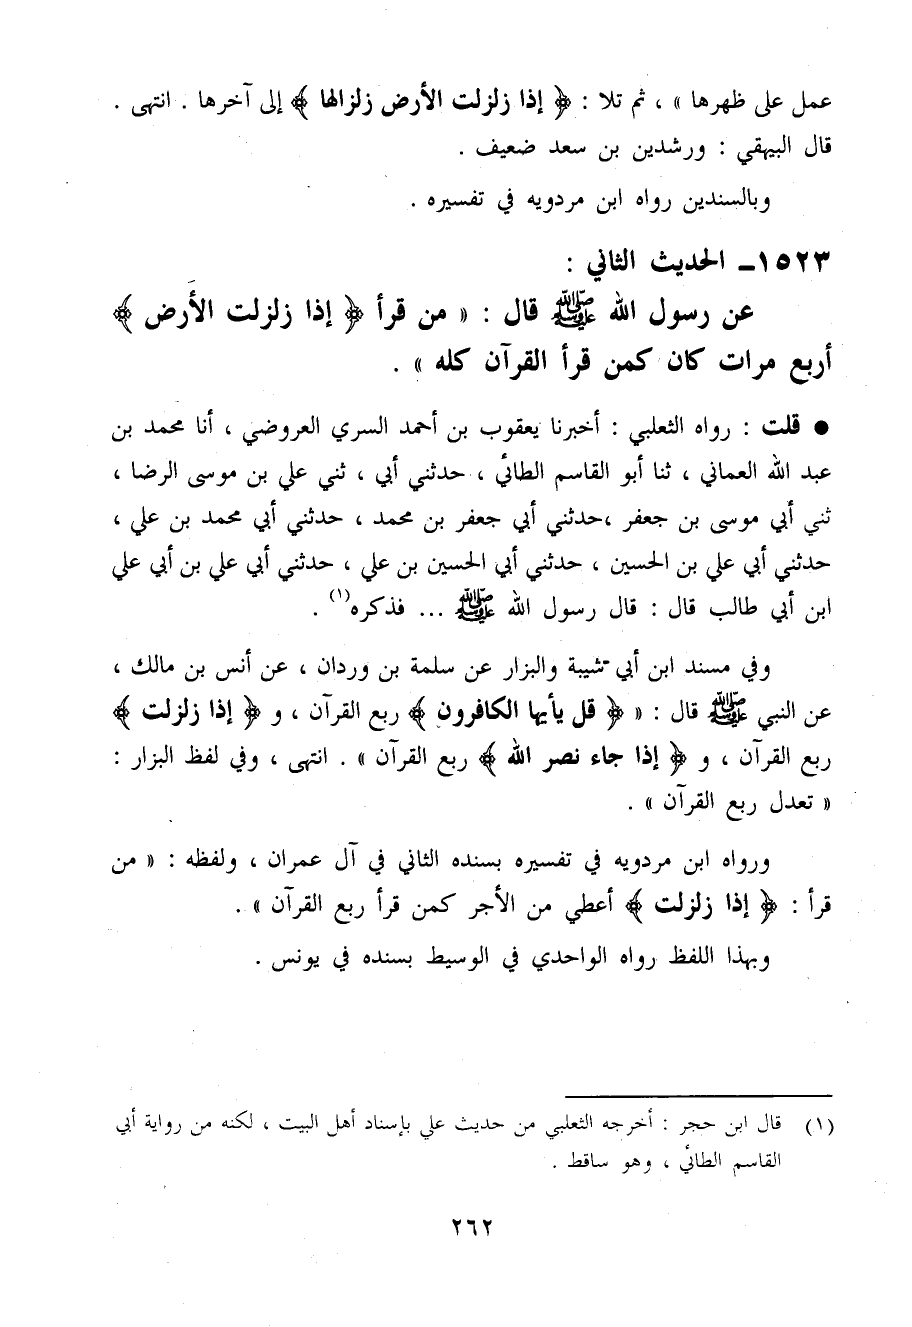 عمل على ظهرها » ، ثم تلا : ﴿ إذا زلزلت الأرض زلزالها ﴾ إلى آخرها . انتهى .
قال البيهقي : ورشدين بن سعد ضعيف .
وبالسندين رواه ابن مردويه في تفسيره .
١٥٢٣ـ الحديث الثاني :
عن رسول الله ﷺ قال : « من قرأ ﴿ إذا زلزلت الأرض ﴾
أربع مرات كان كمن قرأ القرآن كله » .
● قلت : رواه الثعلبي : أخبرنا يعقوب بن أحمد السري العروضي ، أنا محمد بن
عبد الله العماني ، ثنا أبو القاسم الطائي ، حدثني أبي ، ثني علي بن موسى الرضا ،
ثني أبي موسى بن جعفر ،حدثني أبي جعفر بن محمد ، حدثني أبي محمد بن علي ،
حدثني أبي علي بن الحسين ، حدثني أبي الحسين بن علي ، حدثني أبي علي بن أبي علي
ابن أبي طالب قال : قال رسول الله ﷺ ... فذكره(١) .
وفي مسند ابن أبي شيبة والبزار عن سلمة بن وردان ، عن أنس بن مالك ،
عن النبي ﷺ قال : « ﴿ قل يأيها الكافرون ﴾ ربع القرآن ، و ﴿ إذا زلزلت ﴾
ربع القرآن ، و ﴿ إذا جاء نصر الله ﴾ ربع القرآن » . انتهى ، وفي لفظ البزار :
« تعدل ربع القرآن » .
ورواه ابن مردويه في تفسيره بسنده الثاني في آل عمران ، ولفظه : « من
قرأ : ﴿ إذا زلزلت ﴾ أعطي من الأجر كمن قرأ ربع القرآن » .
وبهذا اللفظ رواه الواحدي في الوسيط بسنده في يونس .
(١) قال ابن حجر : أخرجه الثعلبي من حديث علي بإسناد أهل البيت ، لكنه من رواية أبي
القاسم الطائي ، وهو ساقط .
٢٦٢